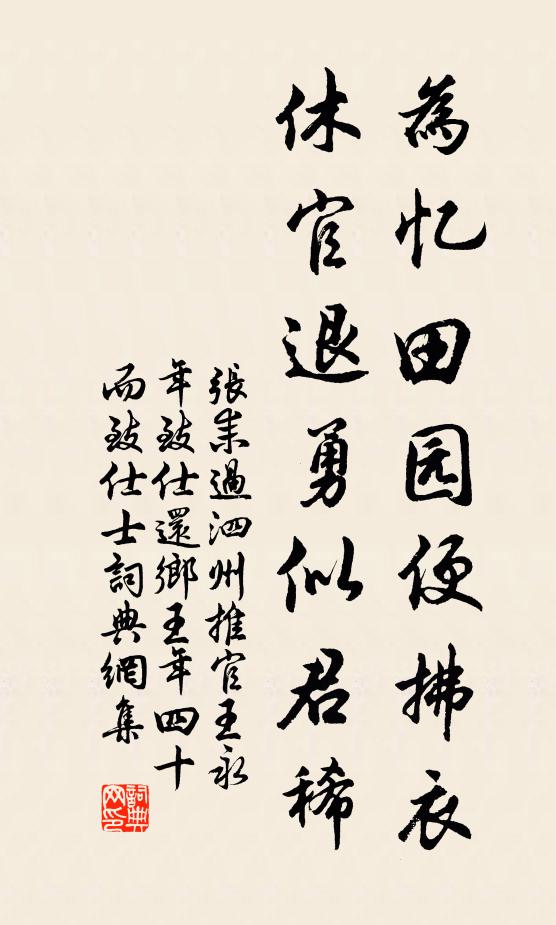 為忆田园便拂衣
休官退勇似君稀
張耒過泗州推官王永
年致仕還鄉王年四十
而致仕士詞典網集
詞典网印